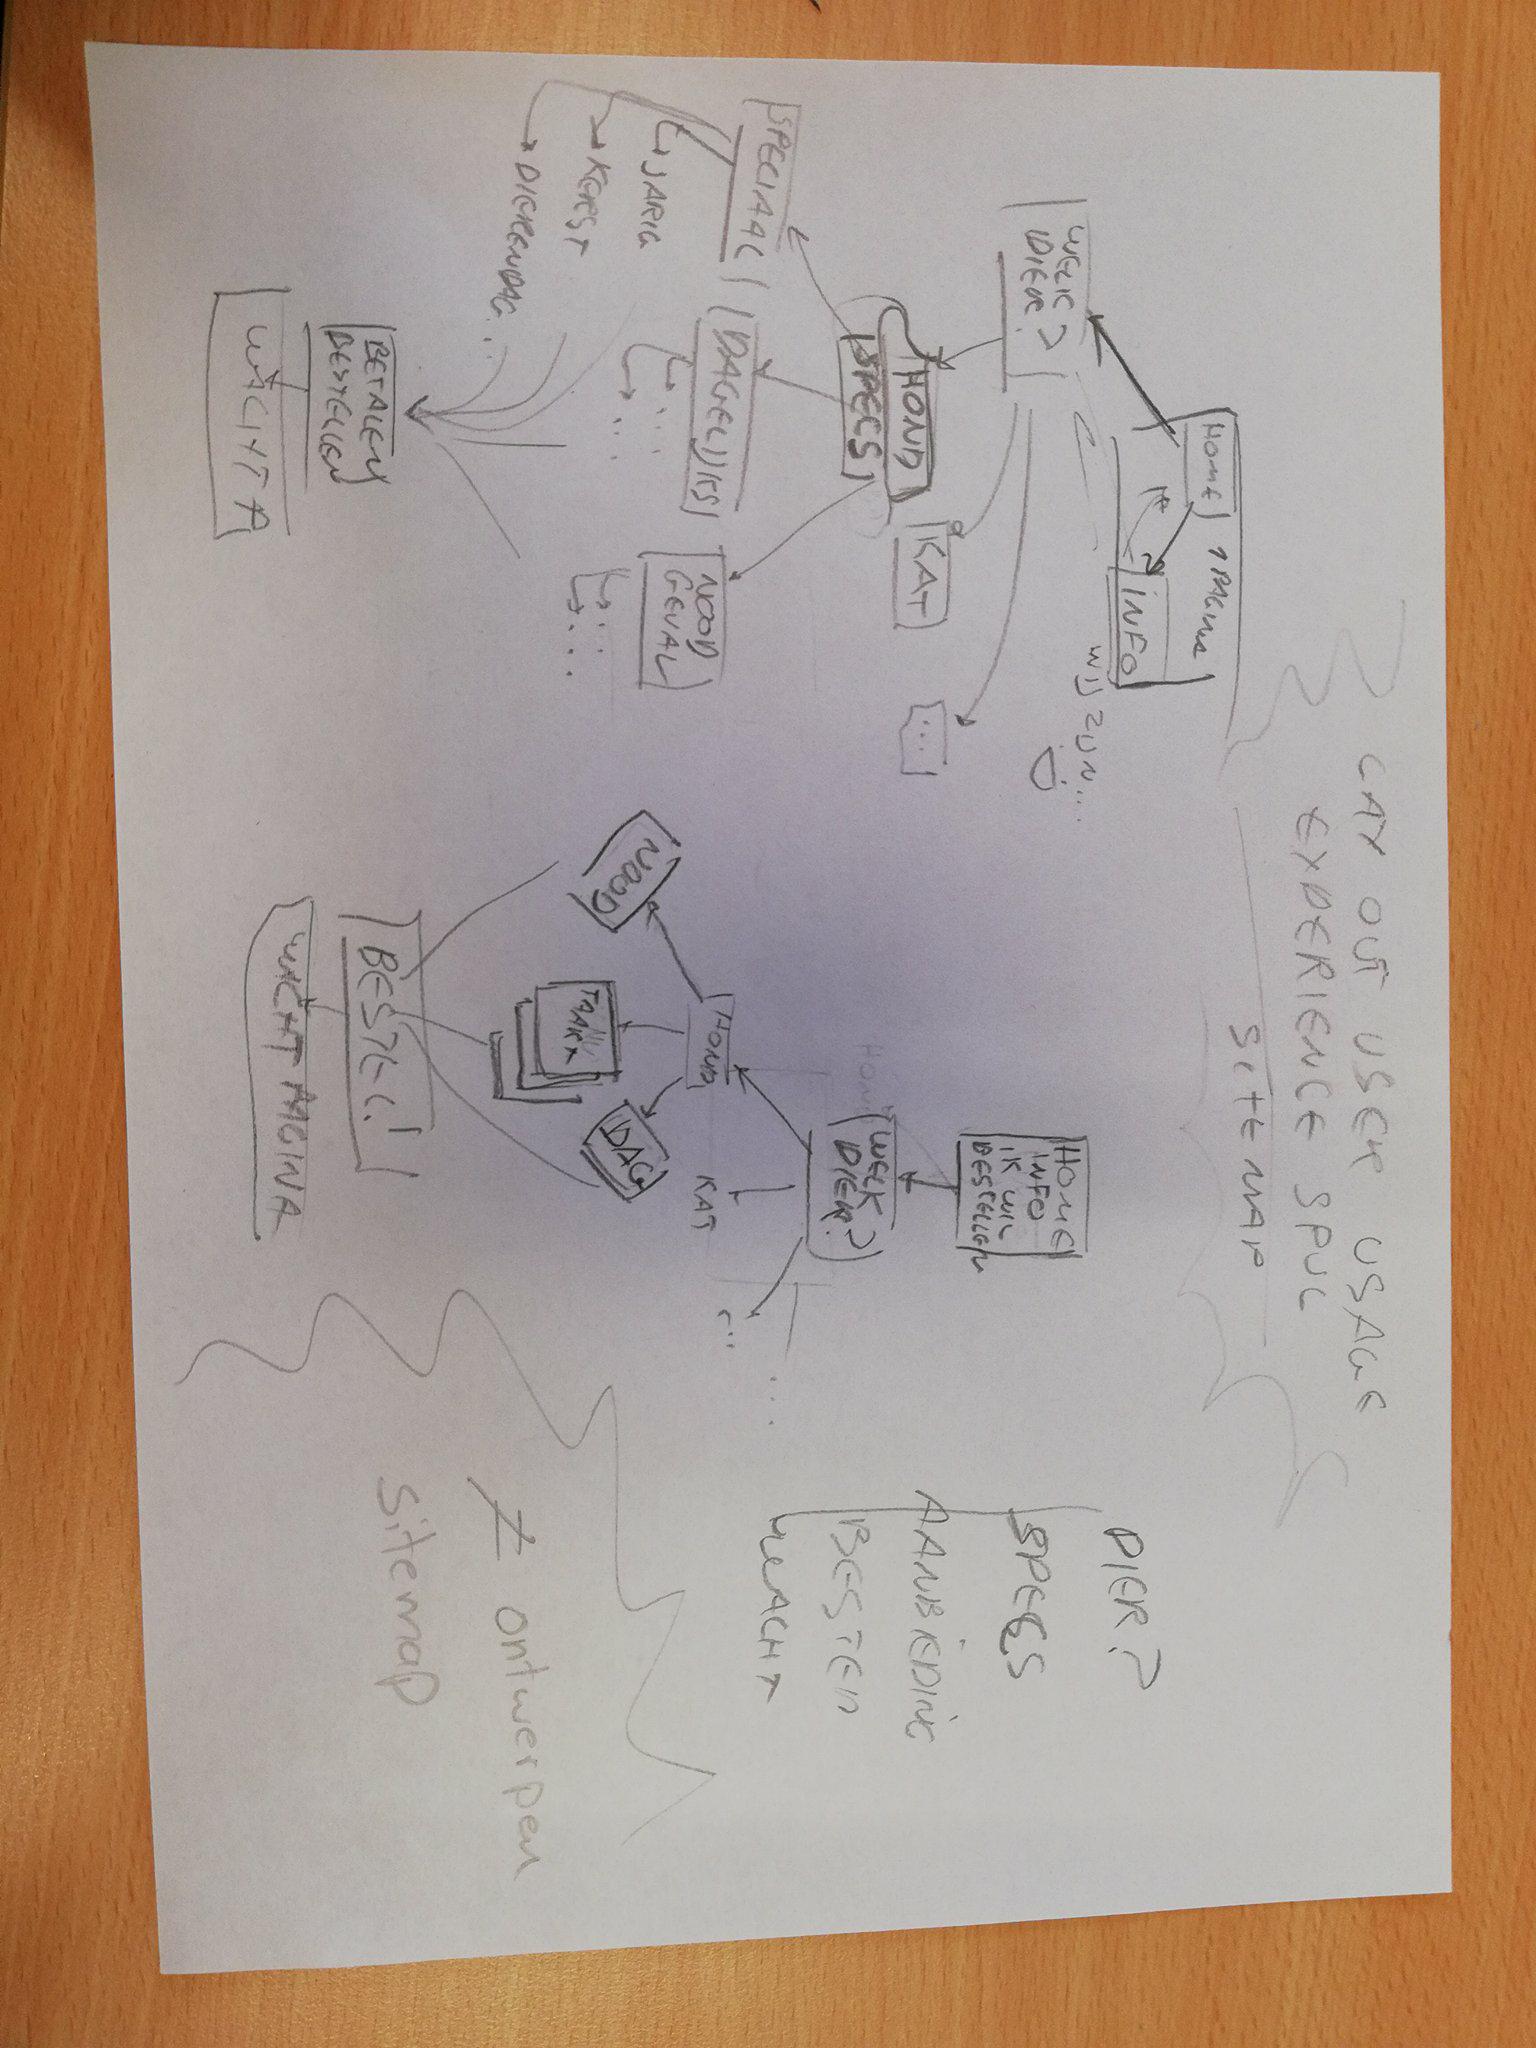 LAY OUT USER USAGE
EXPERIENCE SPUL
SITEMAP
HOME
1 PAGINA
INFO
WIJ ZIJN...
WELK
DIER?
HOND
KAT
...
SPECS
SPECIAAL
DAGELIJKS
NOOD
GEVAL
JARIG
KERST
DIERENDAG...
...
...
...
...
BETALEN
BESTELLEN
WACHT P
HOME
INFO
IK WIL
BESTELLEN
HOND
WELK
DIER?
...
HOND
KAT
...
NOOD
TAART
DAG
BESTEL!
WACHT PAGINA
DIER?
SPECS
AANBIEDING
BESTED
WACHT
≠ ontwerpen
sitemap